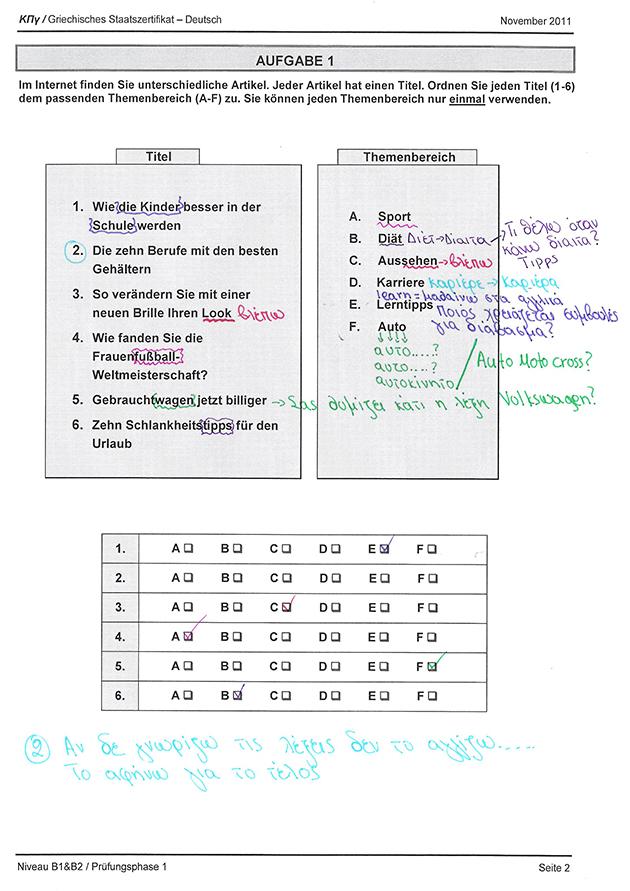 ΚΠγ / Griechisches Staatszertifikat – Deutsch November 2011
AUFGABE 1
Im Internet finden Sie unterschiedliche Artikel. Jeder Artikel hat einen Titel. Ordnen Sie jeden Titel (1-6)
dem passenden Themenbereich (A-F) zu. Sie können jeden Themenbereich nur einmal verwenden.
Titel
1. Wie die Kinder besser in der
Schule werden
2. Die zehn Berufe mit den besten
Gehältern
3. So verändern Sie mit einer
neuen Brille Ihren Look βλέπω
4. Wie fanden Sie die
Frauenfußball-
Weltmeisterschaft?
5. Gebrauchtwagen jetzt billiger → Σας θυμίζει κάτι η λέξη Volkswagen?
6. Zehn Schlankheitstipps für den
Urlaub
Themenbereich
A. Sport
B. Diät Διέτ → Δίαιτα → Τι θέλω όταν
κάνω δίαιτα?
Τιpps
C. Aussehen → βλέπω
D. Karriere καριέρε → καριέρα
learn = μαθαίνω στα αγγλικά
E. Lerntipps ποιος χρειάζεται συμβουλές
για διάβασμα?
F. Auto
αυτο....?
αυτο....?
αυτοκίνητο
Auto Moto cross?
1. A B C D E F
2. A B C D E F
3. A B C D E F
4. A B C D E F
5. A B C D E F
6. A B C D E F
2 Αν δε γνωρίζω τις λέξεις δεν το αγγίζω.....
Το αφήνω για το τέλος
Niveau B1&B2 / Prüfungsphase 1 Seite 2